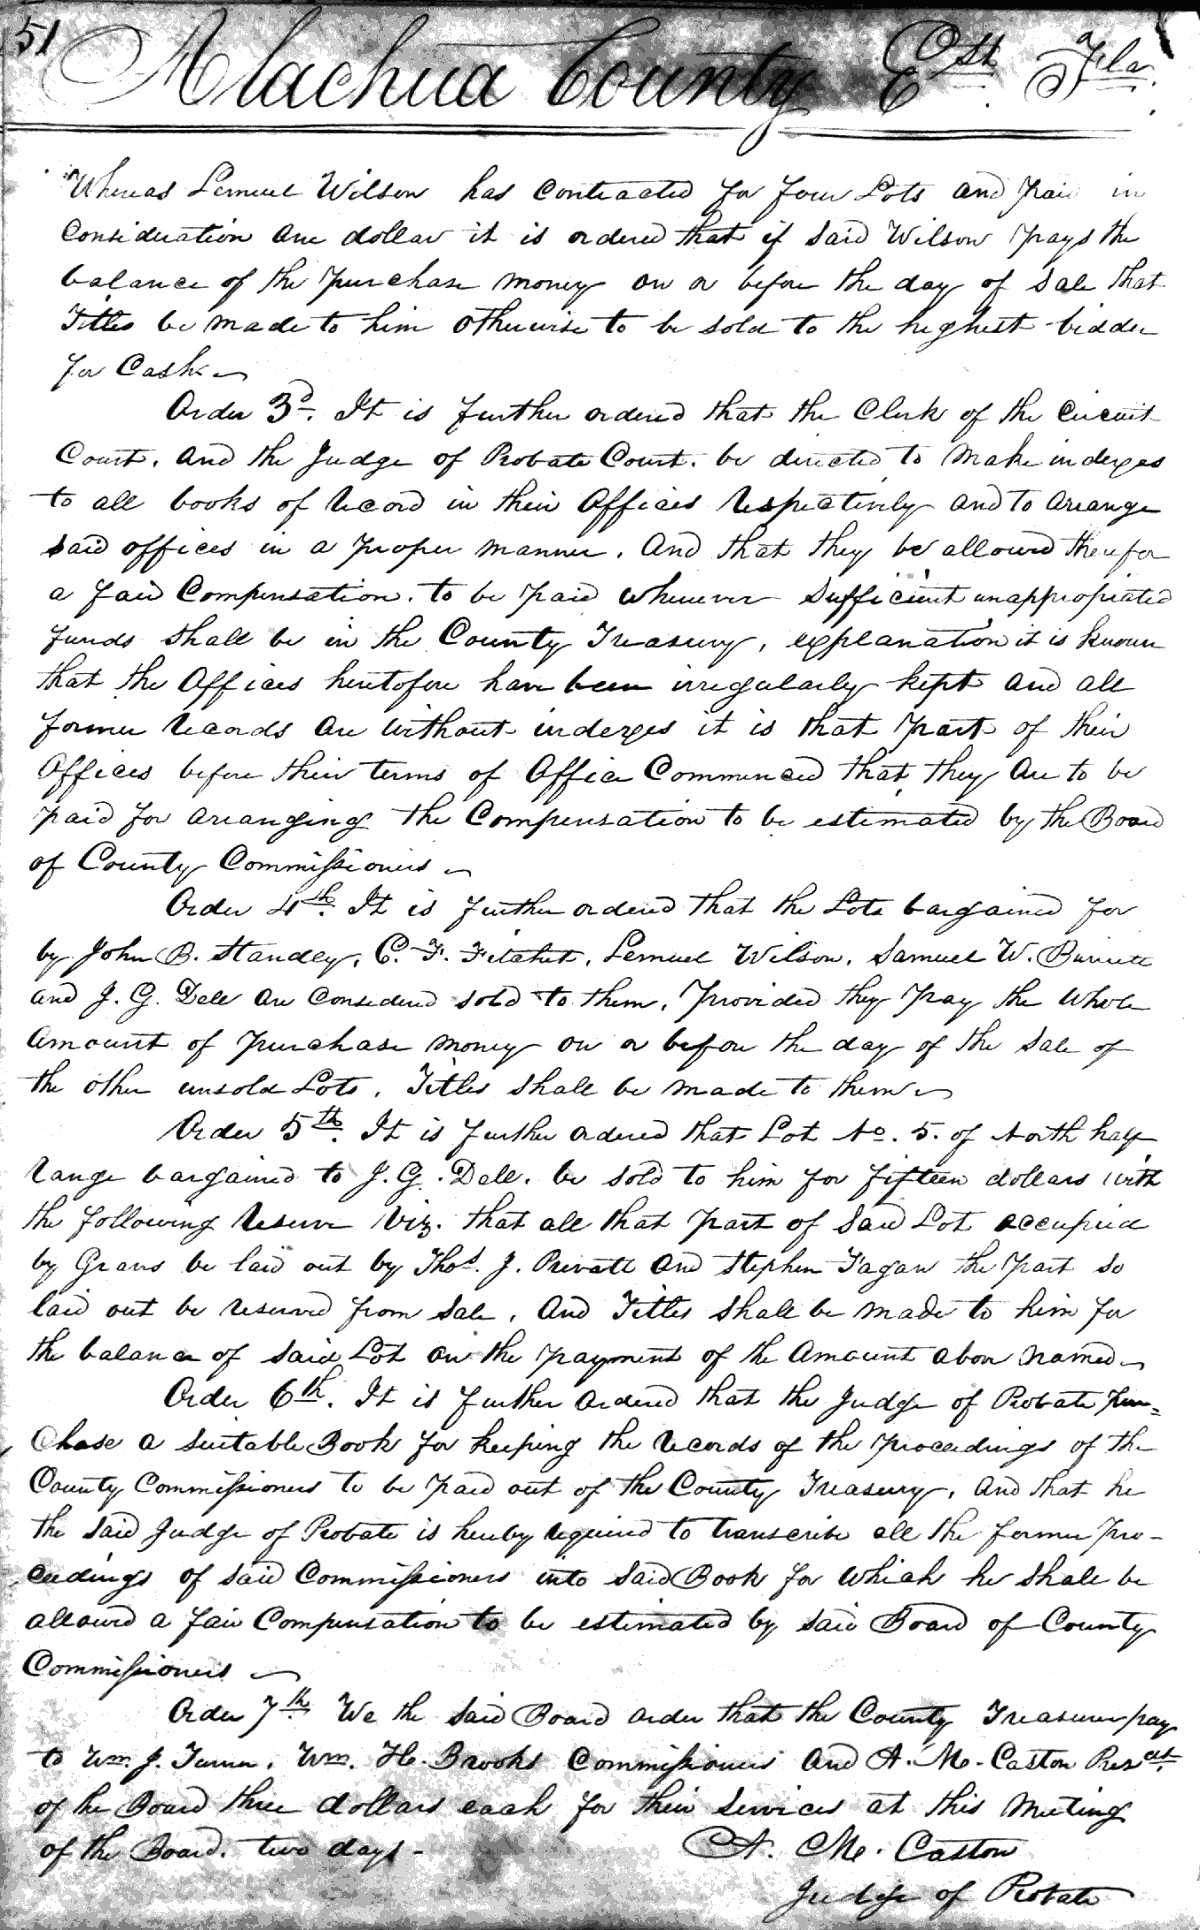 51
Alachua County Est Fla.
"Whereas Lemuel Wilson has Contracted for four Lots and paid in
Consideration One dollar it is ordered that if Said Wilson pays the
balance of the purchase money on or before the day of Sale that
Titles be made to him Otherwise to be sold to the highest bidder
for Cash
Order 3d. It is further ordered that the Clerk of the Circuit
Court. and the Judge of Probate Court. be directed to Make indexes
to all books of Record in their Offices Respectively and to Arrange
said offices in a proper manner. And that they be allowed therefor
a fair Compensation. to be paid whenever Sufficient unappropriated
funds Shall be in the County Treasury, explanation it is known
that the Offices heretofore have been irregularly kept and all
former Records are without indexes it is that part of their
Offices before their terms of Office Commenced that they are to be
paid for arranging the Compensation to be estimated by the Board
of County Commissioners
Order 4th. It is further ordered that the Lots bargained for
by John B. Standley, C. F. Fitchet, Lemuel Wilson, Samuel W. Burnett
and J. G. Dell are Considered sold to them, Provided they Pay the Whole
Amount of purchase money on or before the day of the Sale of
the other unsold Lots, Titles shall be made to them
Order 5th. It is further Ordered that Lot No. 5. of North half
Range bargained to J. G. Dell. be sold to him for fifteen dollars with
the following Reserve Viz. that all that part of Said Lot occupied
by Graves be laid out by Thos. J. Prevatt and Stephen Fagan the Part so
laid out be reserved from Sale, and Titles Shall be made to him for
the balance of said Lot on the payment of the Amount above named
Order 6th. It is further Ordered that the Judge of Probate Pur=
Chase a Suitable Book for keeping the Records of the Proceedings of the
County Commissioners to be paid out of the County Treasury, and that he
the Said Judge of Probate is hereby required to transcribe all the former Pro-
ceedings of said Commissioners into Said Book for Which he Shall be
allowed a fair Compensation to be estimated by said Board of County
Commissioners
Order 7th We the Said Board order that the County Treasurer pay
to Wm. J. Turner, Wm. H. Brooks Commissioners and A. Mc. Caston
of the Board three dollars each for their Services at this Meeting
of the Board. two days -
A. Mc. Caston
Judge of Probate